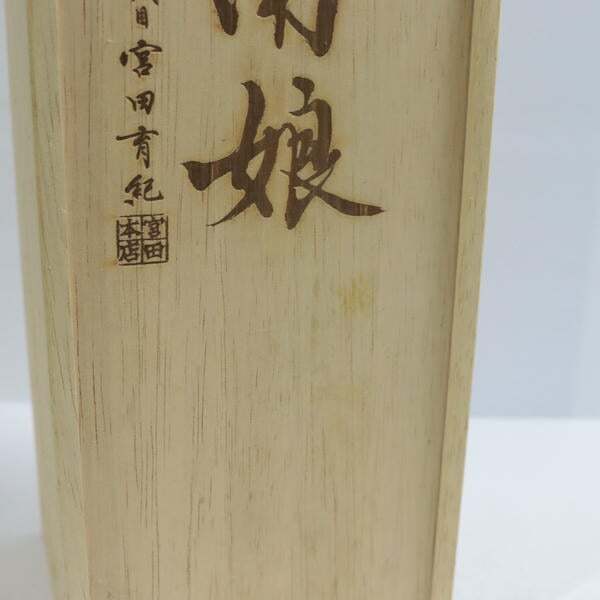 娘
目 宮田育紀
宮田
本店